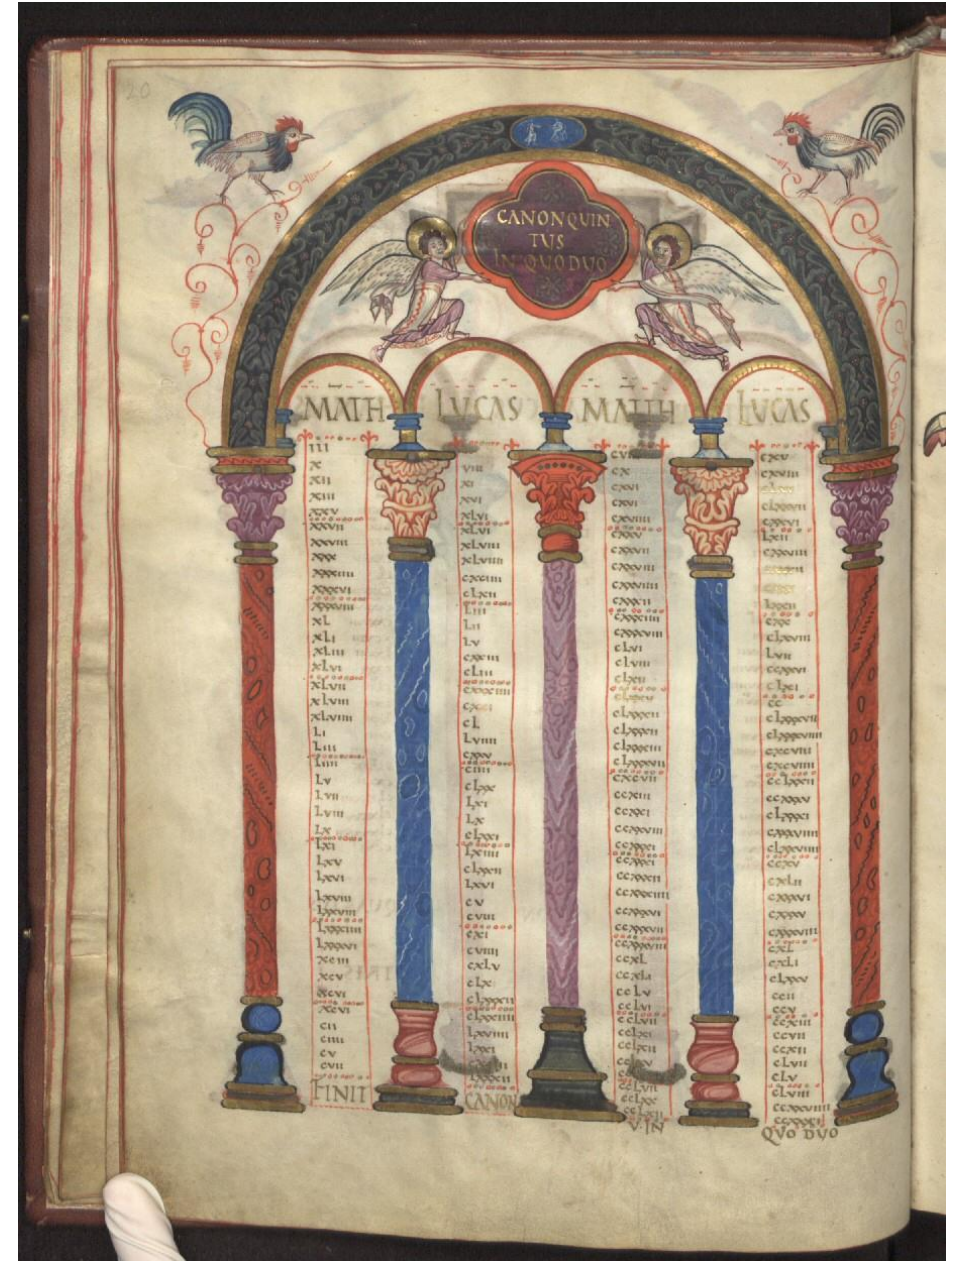 20
CANON QUIN
TUS
IN QUO DUO
MATH
LUCAS
MATTH
LUCAS
III
X
XII
XIII
XXV
XXVII
XXVIII
XXX
XXXIIII
XXXVI
XXXVIII
XL
XLI
XLIII
XLVI
XLVII
XLVIII
XLVIIII
LI
LIII
LIIII
LV
LVII
LVIII
LX
LXI
LXV
LXVI
LXVIII
LXXVIII
LXXXIIII
LXXXVI
XCIII
XCV
XCVI
XCVI
CII
CIIII
CV
CVII
FINIT
VIII
XI
XVI
XLVI
XLVI
XLVIII
XLVIIII
CXCIIII
CLXII
LIII
LII
LV
CXXIII
CLIII
CXXXIIII
CL
LVIIII
CXXV
CLXX
LXI
LX
CLXXI
LXIIII
CLXXII
LXVI
CV
CVIII
CXI
CVIIII
CXLV
CLX
CLXXXII
CLXXXIIII
LXVIIII
LXXI
CANON
CX
CXVI
CXVI
CXVIIII
CXXV
CXXVII
CXXVIII
CXXVIIII
CXXXII
CXXXIIII
CXXXVIII
CLVI
CLVIII
CLXII
CLXXV
CLXXXII
CLXXXII
CLXXXIII
CLXXXVII
CXCVII
CCXIII
CCXXI
CCXXVIII
CCXXXI
CCXXXI
CCXXXII
CCXXXIIII
CCXXXVI
CCXXXVII
CCXXXVIII
CCXL
CCXLI
CCLV
CCLVI
CCLVII
CCLXI
CCLXII
CCLXV
CCLVII
CCLXX
CCLXXII
V IN
CXV
CXVIII
CLXXVII
CXXVI
LXII
CXXVIII
LXXII
CXX
CLXVIII
LVII
CCXVI
CLXI
CC
CLXXXVII
CLXXXVIIII
CXCVIII
CXCVIII
CCLXXII
CCXXXV
CLXXXI
CXXXVIIII
CLXXVIIII
CCXV
CXLII
CXXXVI
CXXXV
CXXXVIII
CXL
CXLI
CLXXV
CCII
CCV
CCXIII
CCVII
CCXII
CLVII
CLV
CLVIII
CCXXVIIII
CCXXXI
QVO DVO